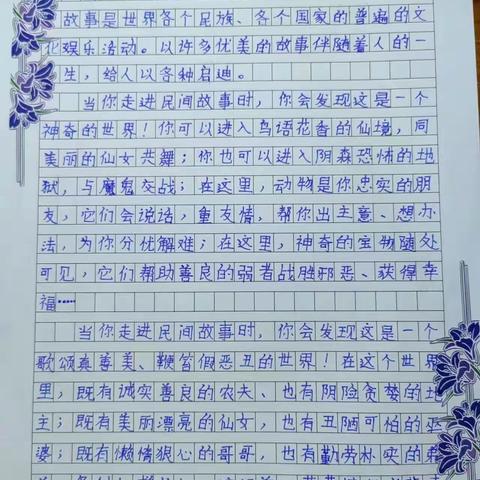 故事是世界各个民族、各个国家的普遍的文
化娱乐活动。以许多优美的故事伴随着人的一
生,给人以各种启迪。
当你走进民间故事时,你会发现这是一个
神奇的世界!你可以进入鸟语花香的仙境,同
美丽的仙女共舞;你也可以进入阴森恐怖的地
狱,与魔鬼交战;在这里,动物是你忠实的朋
友,它们会说话,重友情,帮你出主意、想办
法,为你分忧解难;在这里,神奇的宝物随处
可见,它们帮助善良的弱者战胜邪恶、获得幸
福……
当你走进民间故事时,你会发现这是一个
歌颂真善美、鞭笞假恶丑的世界!在这个世界
里,既有诚实善良的农夫、也有阴险贪婪的地
主;既有美丽漂亮的仙女,也有丑陋可怕的巫
婆;既有懒惰狠心的哥哥,也有勤劳朴实的